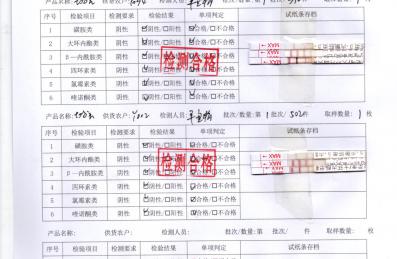 序号 检验项目 检测要求 检验结果 单项判定 试纸条存档
1 磺胺类 阴性 ☑阴性/□阳性 ☑合格/□不合格
2 大环内酯类 阴性 ☑阴性/□阳性 ☑合格/□不合格
3 β一内酰胺类 阴性 ☑阴性/□阳性 ☑合格/□不合格
4 四环素类 阴性 ☑阴性/□阳性 ☑合格/□不合格
5 氯霉素类 阴性 ☑阴性/□阳性 ☑合格/□不合格
6 喹诺酮类 阴性 ☑阴性/□阳性 ☑合格/□不合格
检测合格
MAX
MAX
产品名称: 供货农户: Y002 检测人员: 批次/数量:第1批次/502件 取样数量:1枚
序号 检验项目 检测要求 检验结果 单项判定 试纸条存档
1 磺胺类 阴性 ☑阴性/□阳性 ☑合格/□不合格
2 大环内酯类 阴性 ☑阴性/□阳性 ☑合格/□不合格
3 β一内酰胺类 阴性 ☑阴性/□阳性 ☑合格/□不合格
4 四环素类 阴性 ☑阴性/□阳性 ☑合格/□不合格
5 氯霉素类 阴性 ☑阴性/□阳性 ☑合格/□不合格
6 喹诺酮类 阴性 ☑阴性/□阳性 ☑合格/□不合格
检测合格
MAX
MAX
产品名称: 供货农户: 检测人员: 批次/数量:第 批次/ 件 取样数量: 枚
序号 检验项目 检测要求 检验结果 单项判定 试纸条存档